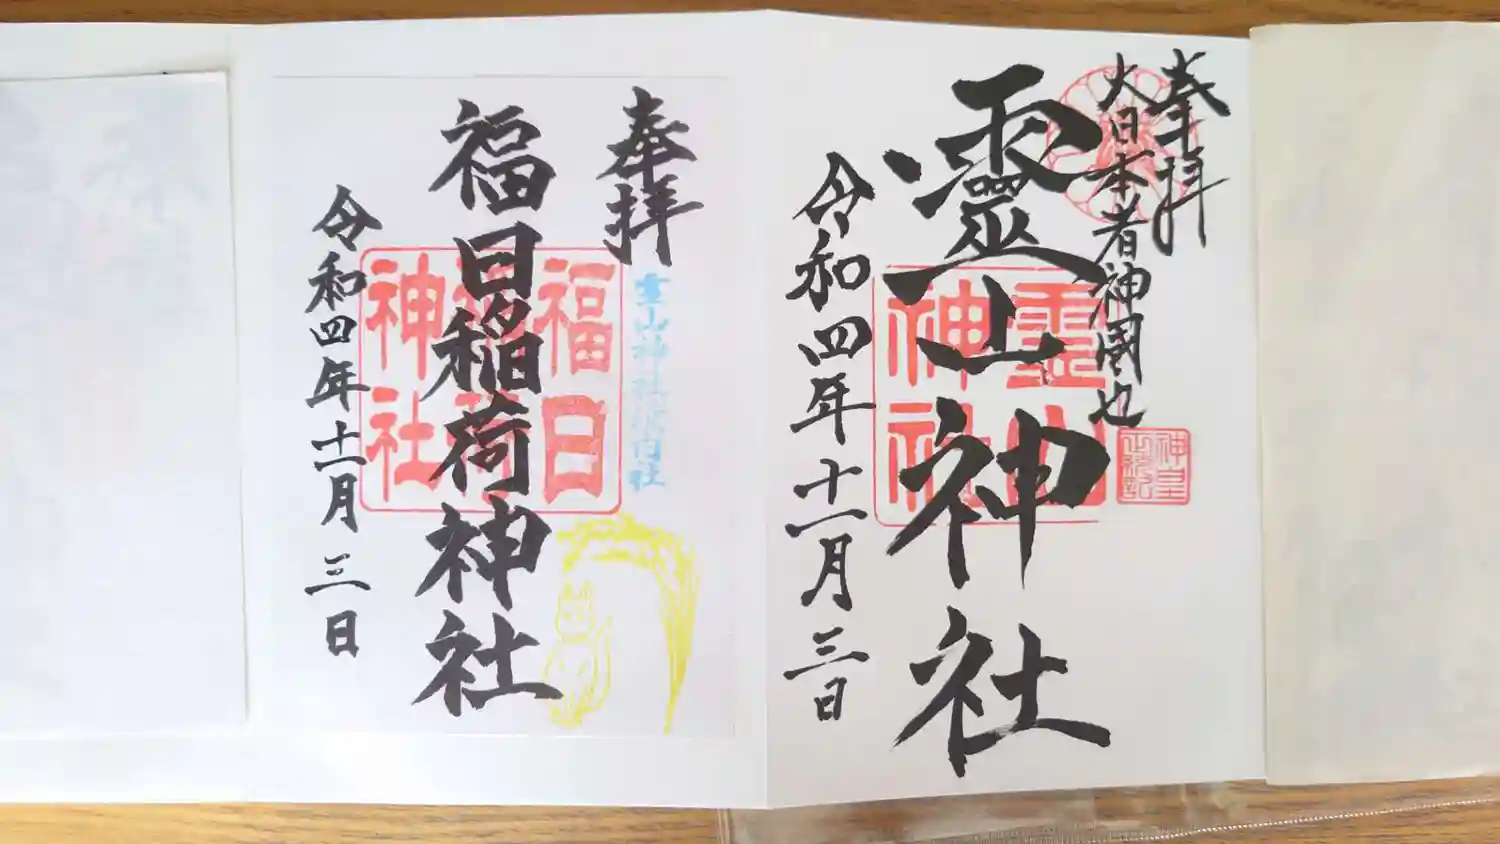 奉拝
大日本者神國也
靈山神社
霊山神社
神皇正統記
令和四年十一月三日
奉拝
霊山神社境内社
福日稲荷神社
福日稲荷神社
令和四年十一月三日